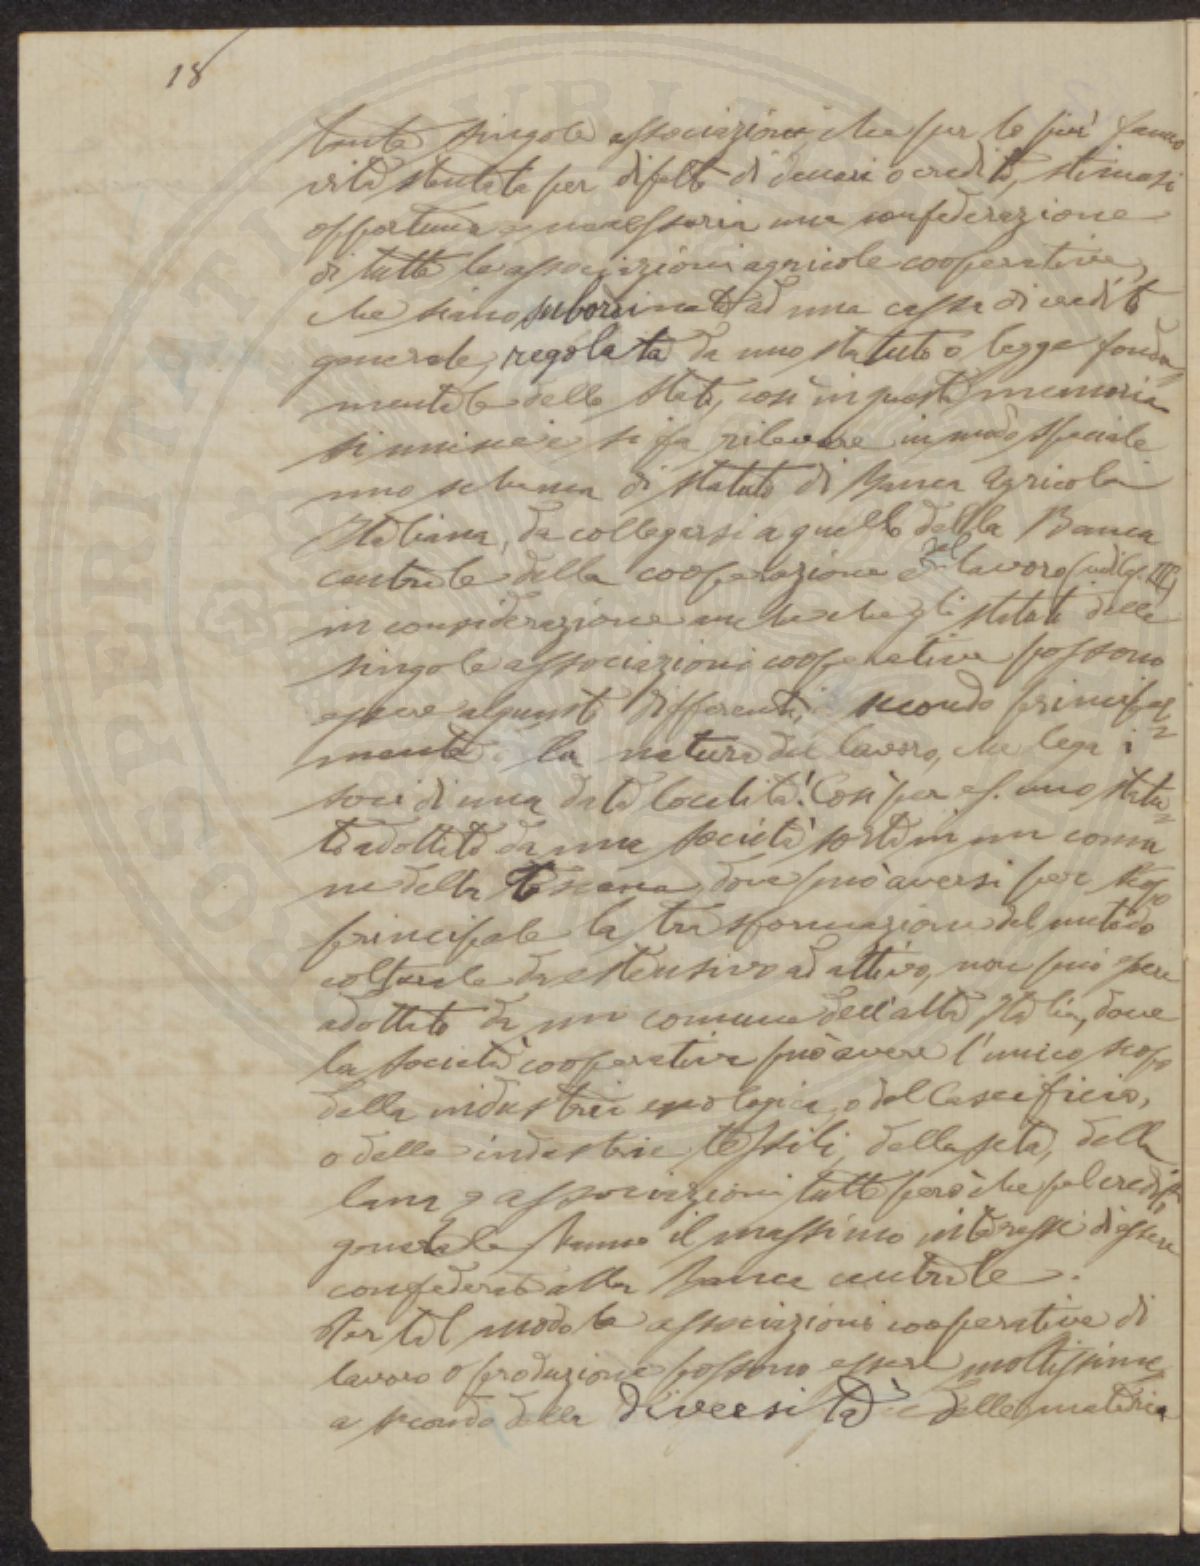 18
tante singole associazioni, che per lo più fanno
vita stentata per difetto di denari o credito, stimasi
opportuna e necessaria una confederazione
di tutte le associazioni agricole cooperative,
che siano subordinate ad una cassa di credito
generale, regolata da uno statuto o legge fonda=
mentale dello Stato, così in questa memoria
si unisce e si fa rilevare in modo speciale
uno schema di statuto di Banca Agricola
Italiana, da collegarsi a quello della Banca
centrale della cooperazione del lavoro (vedi Cap. III)
in considerazione anche che gli statuti delle
singole associazioni cooperative possono
essere alquanto differenti, secondo principal=
mente la natura del lavoro, che lega i
soci di una data località. Così per es. uno statu=
to adottato da una società sorta in un comu
ne della Toscana, dove può aversi per scopo
principale la trasformazione del metodo
colturale da estensivo ad attivo, non può essere
adottato da un comune dell'alta Italia, dove
la società cooperativa può avere l'unico scopo
della industria enologica, o del Caseificio,
o delle industrie tessili, della seta, della
lana, associazioni tutte però che pel credito
generale hanno il massimo interesse di essere
confederate alla Banca centrale.
Per tal modo le associazioni cooperative di
lavoro o produzione possono essere moltissime
a seconda della diversità delle materie